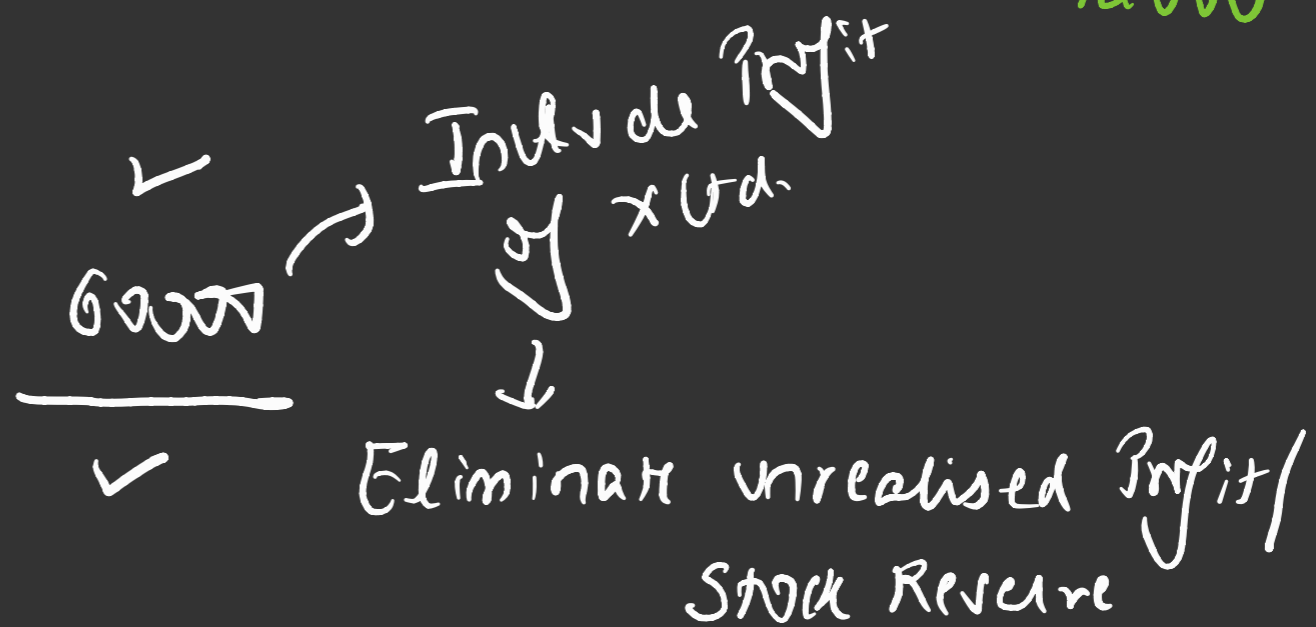 ✓
60000 → Include Profit
of X Ltd.
↓
✓
Eliminate unrealised Profit/
Stock Reserve